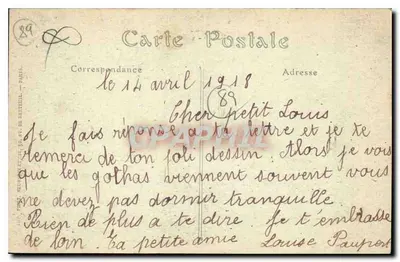 89
Carte Postale
Correspondance
Adresse
le 14 avril 1918
89
Cher petit Louis
Je fais réponse a ta lettre et je te
remerci de ton joli dessin. Alors je vois
que les gothas viennent souvent vous
ne devez pas dormir tranquille
Rien de plus a te dire Je t'embrasse
de loin. Ta petite amie Louise